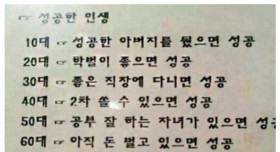 ☞ 성공한 인생
10대 ☞ 성공한 아버지를 뒀으면 성공
20대 ☞ 학벌이 좋으면 성공
30대 ☞ 좋은 직장에 다니면 성공
40대 ☞ 2차 쏠 수 있으면 성공
50대 ☞ 공부 잘 하는 자녀가 있으면 성공
60대 ☞ 아직 돈 벌고 있으면 성공